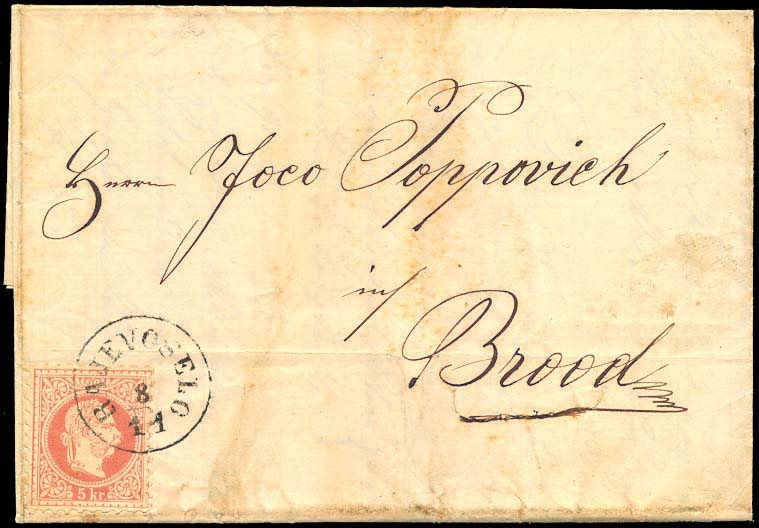 Herrn Joco Poppovich
in/
Brood
RAJEVOSELO
8
11
5 kr.